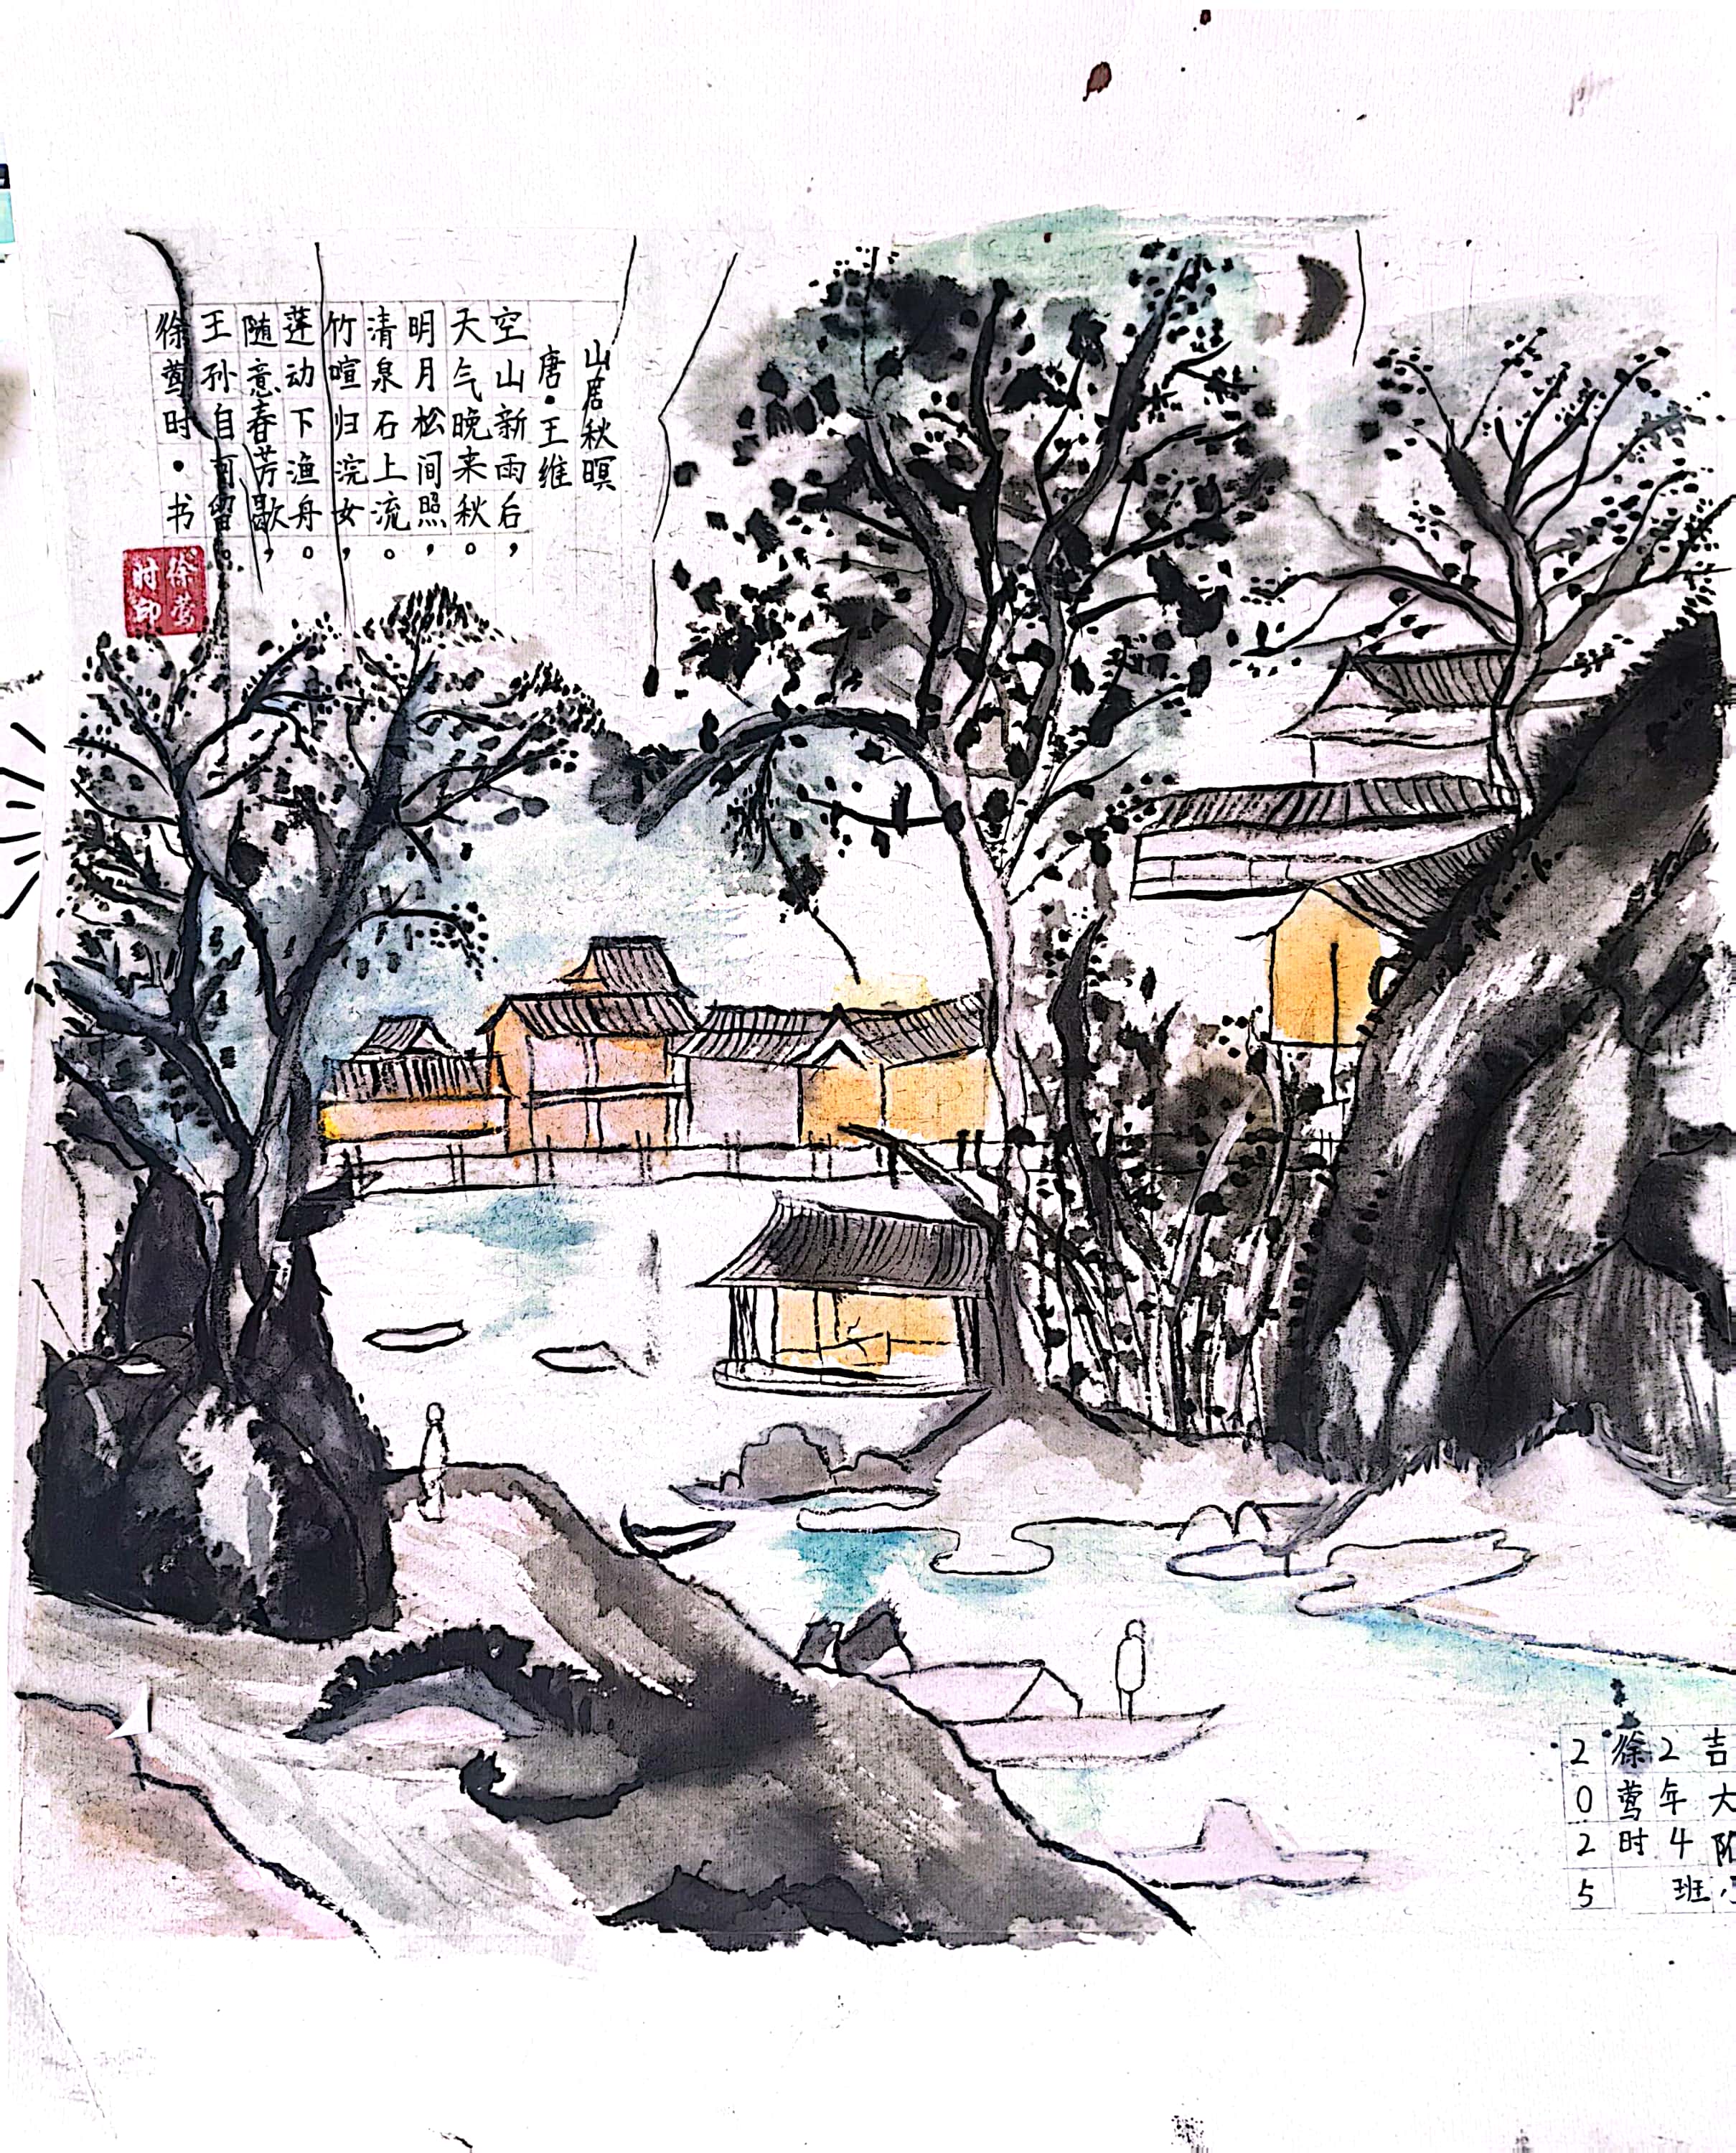 山居秋暝
唐·王维
空山新雨后，
天气晚来秋。
明月松间照，
清泉石上流。
竹喧归浣女，
莲动下渔舟。
随意春芳歇，
王孙自可留。
徐莺时·书
徐莺时印
吉大附
2年4班
徐莺时
2025